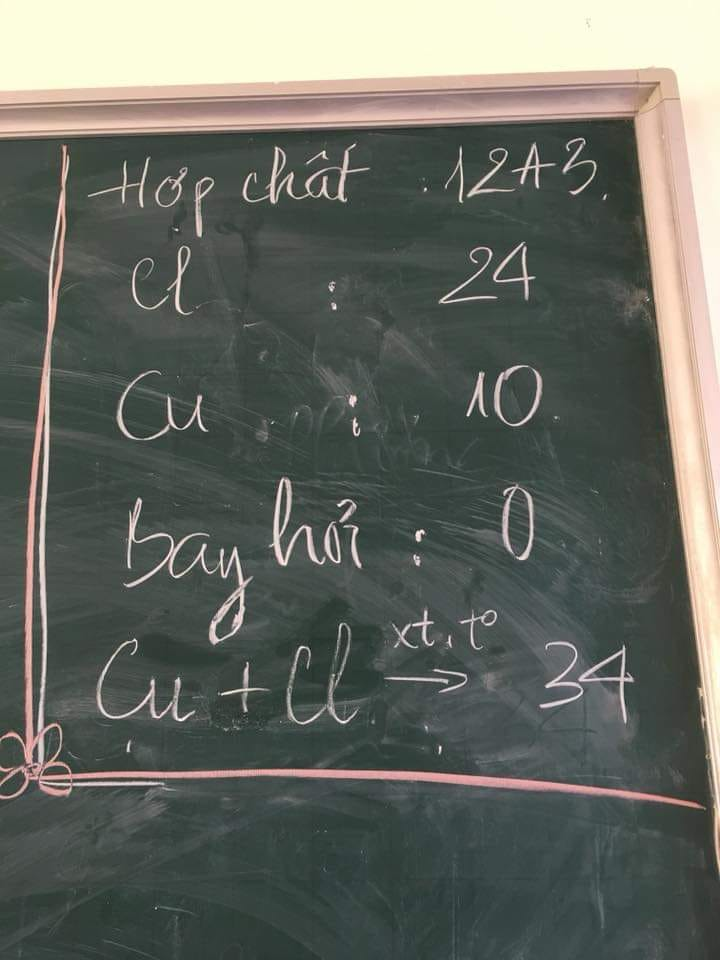 Hợp chất : 12A3.
Cl : 24
Cu : 10.
Bay hơi : 0
Cu + Cl xt, t° → 34